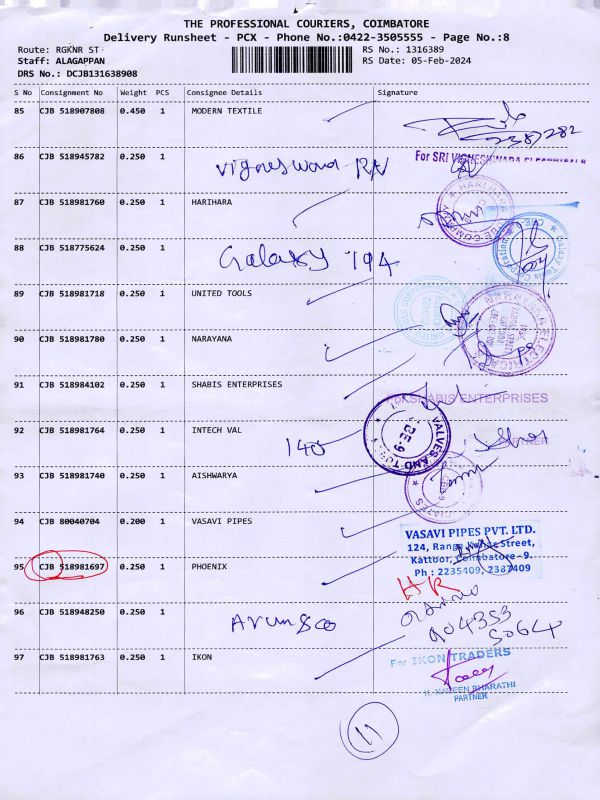 THE PROFESSIONAL COURIERS, COIMBATORE
Delivery Runsheet - PCX - Phone No.:0422-3505555 - Page No.:8
Route: RGKNR ST
RS No.: 1316389
Staff: ALAGAPPAN
RS Date: 05-Feb-2024
DRS No.: DCJB131638908
S No Consignment No Weight PCS Consignee Details Signature
85 CJB 518907808 0.450 1 MODERN TEXTILE
2387282
86 CJB 518945782 0.250 1 Vigneswara
For SRI VIGNESHWARA
87 CJB 518981760 0.250 1 HARIHARA
88 CJB 518775624 0.250 1 Galaxy 194
89 CJB 518981718 0.250 1 UNITED TOOLS
90 CJB 518981780 0.250 1 NARAYANA
91 CJB 518984102 0.250 1 SHABIS ENTERPRISES
SHABIS ENTERPRISES
92 CJB 518981764 0.250 1 INTECH VAL 140
VALVES AND
PARTNER
93 CJB 518981740 0.250 1 AISHWARYA
94 CJB 80040704 0.200 1 VASAVI PIPES
VASAVI PIPES PVT. LTD.
124, Street,
Kattoor, Coimbatore - 9.
Ph : 2235409, 2387409
95 CJB 518981697 0.250 1 PHOENIX
96 CJB 518948250 0.250 1
904353
5064
97 CJB 518981763 0.250 1 IKON
For IKON TRADERS
K. NAVEEN BHARATHI
PARTNER
11